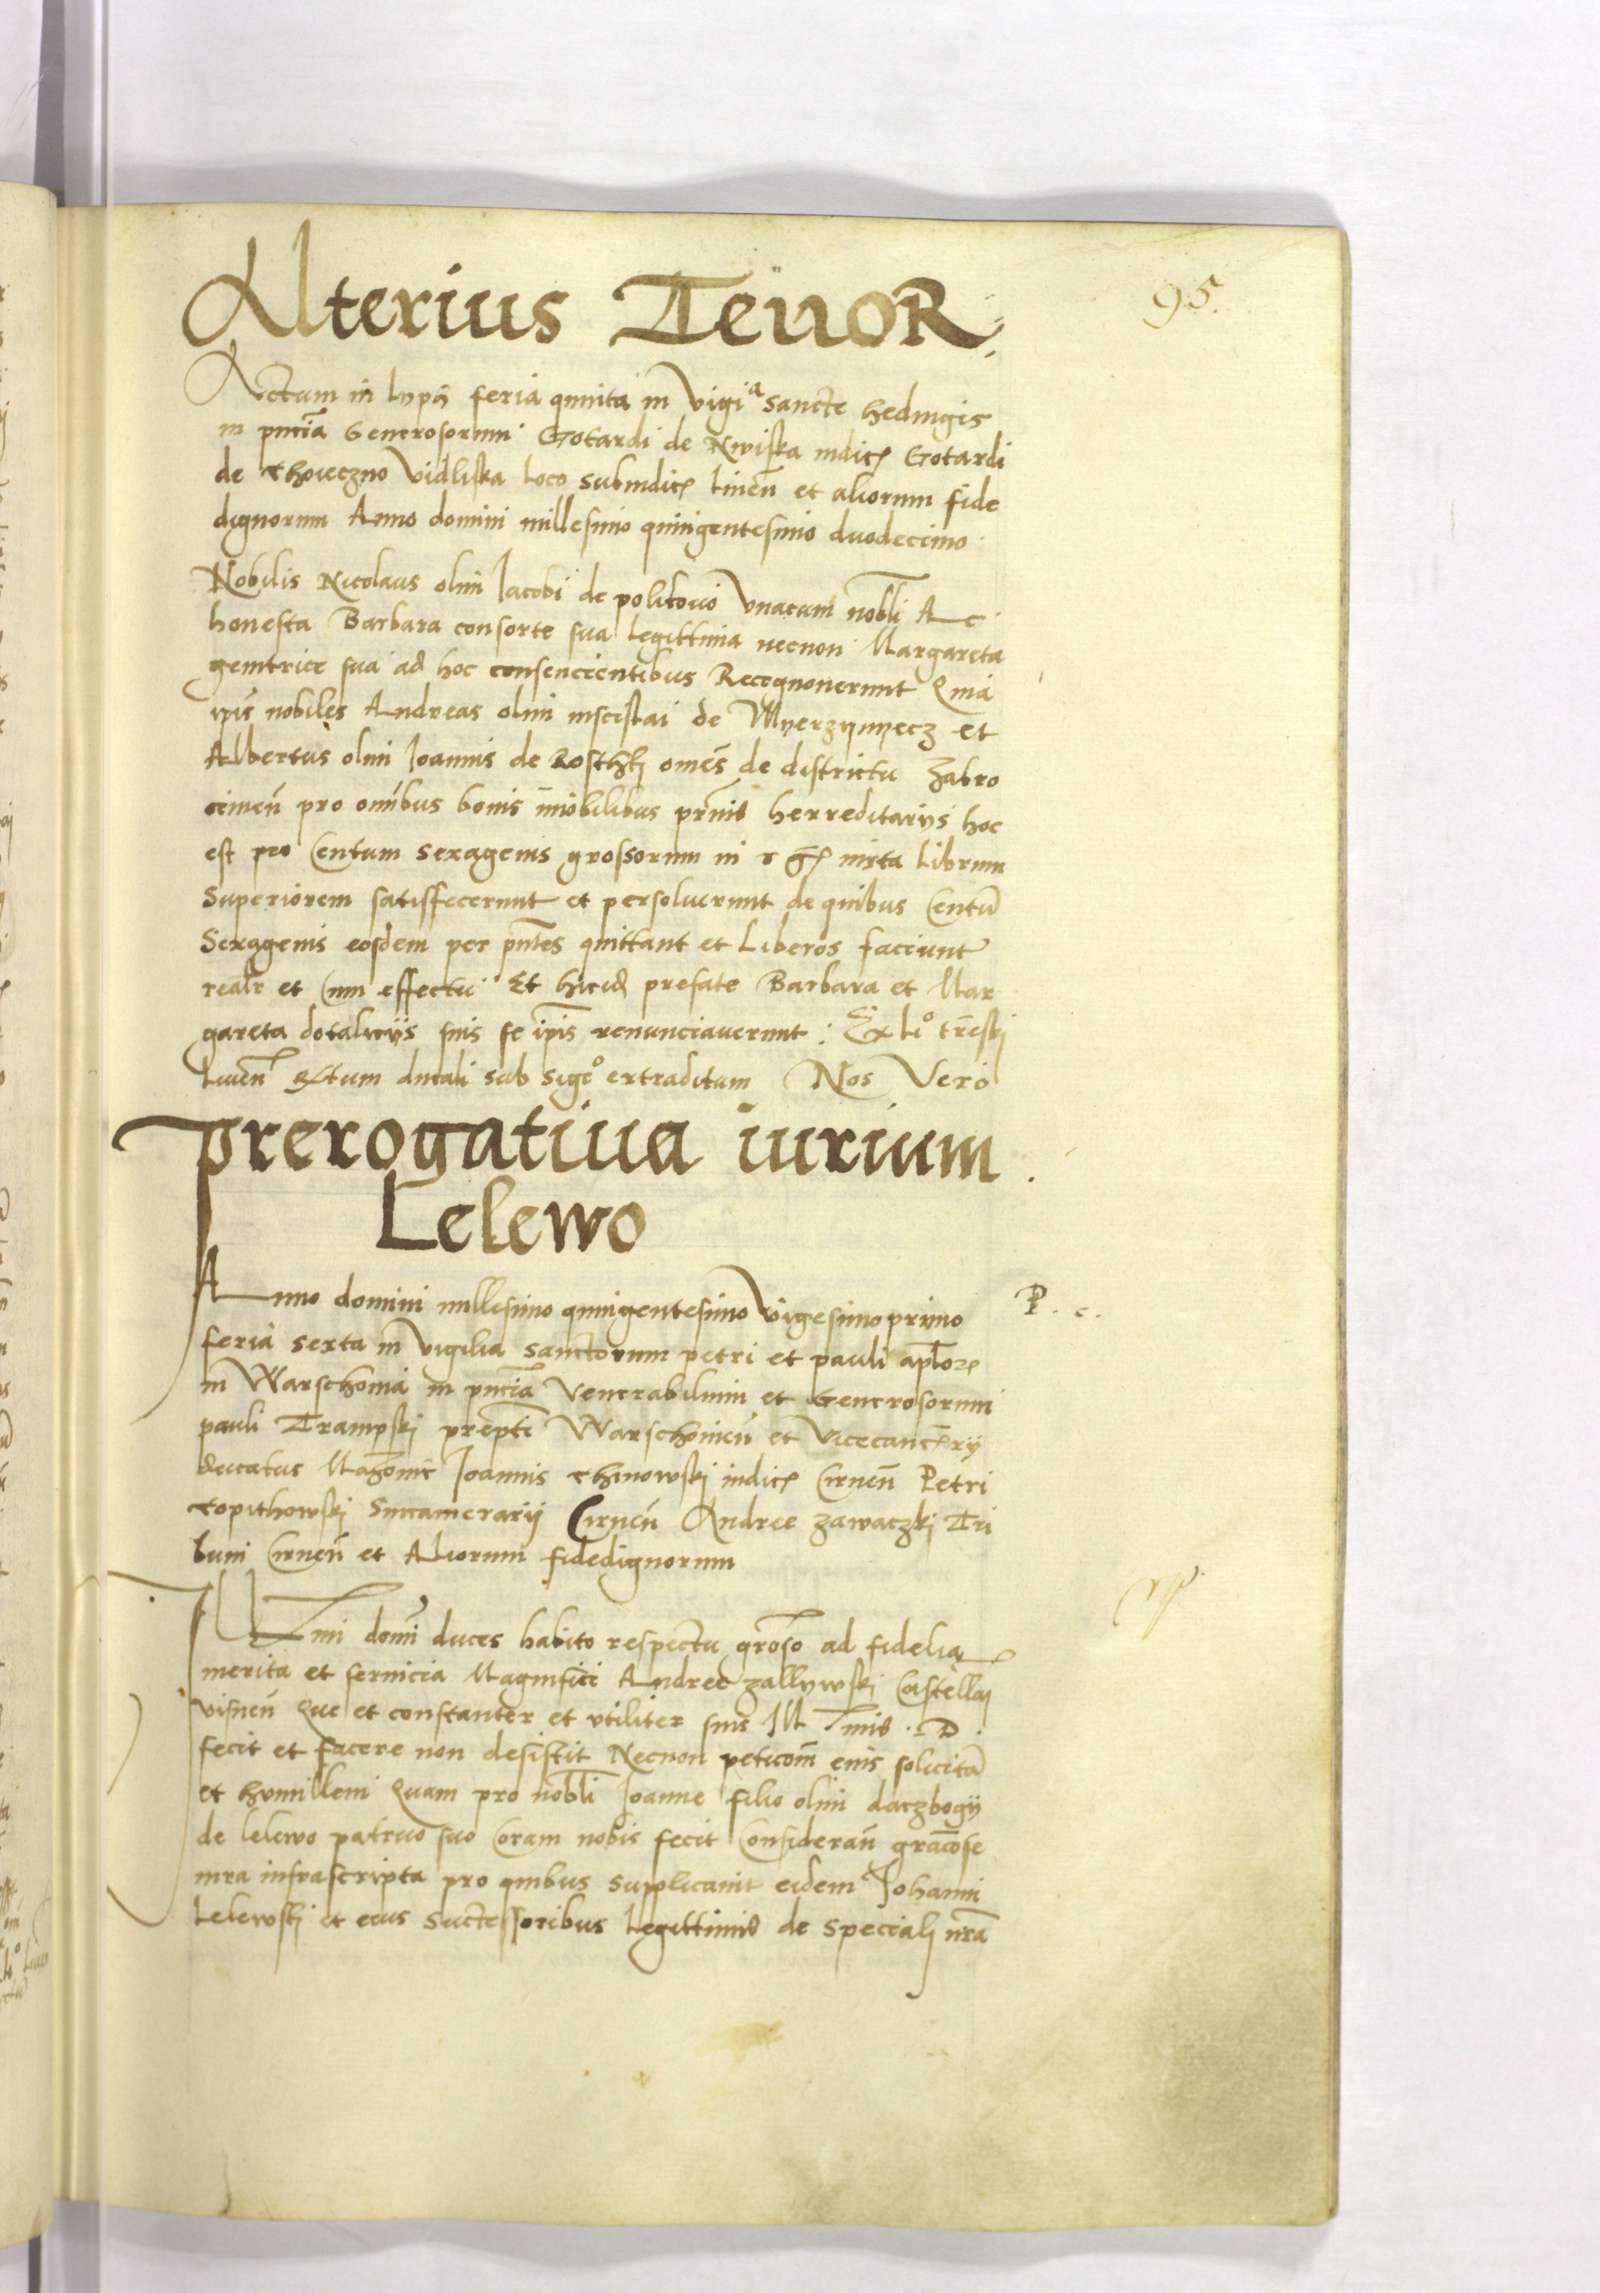 95
Alterius Tenor
Actum in lypa feria quinta in Vigia sancte hedvigis
in pntia Generosorum Gotardi de Nwiska iudic Gotardi
de Thoveczno Vidliska loco subiudic livien et aliorum fide
dignorum Anno domini millesimo quingentesimo duodecimo
Nobilis Nicolaus olim Iacobi de politovo vnacum nobli Ac
honesta Barbara consorte sua legittima necnon Margareta
genitrice sua ad hoc consencientibus Recognoverunt Quia
ipis nobiles Andreas olim mscislai de Myerzynyecz et
Albertus olim Ioannis de Rosthki omes de districtu Zabro
cimen pro omibus bonis imobilibus prnis herreditariis hoc
est pro Centum sexagenis grossorum in iuxta librum
superiorem satisffecerunt et persoluerunt de quibus Centu
Sexagenis eosdem per pntes quittant et liberos faciunt
realr et Cum effectu Et hicide prefate Barbara et Mar
gareta dotaliciis suis se ipis renunciaverunt Ex lio trestri
livien Rectum ducali sub sigo extraditum Nos Vero
prerogativa iurium
Lelewo
Anno domini millesimo quingentesimo Vigesimoprimo P. c.
feria sexta in vigilia sanctorum petri et pauli aplor
in Warschovia in pntia Venerabilium et Generosorum
pauli Trampski prepti Warschovien et Vicecancrij
ducatus Mazovie Ioannis Thinowski iudic Cirnen Petri
Copithowski Succamerarij Cirnen Andree Zawaczki Tri
buni Cirnen et Aliorum fidedignorum
Illmi domi duces habito respectu groso ad fidelia
merita et servicia Magnifici Andree Zallywski Castellai
visnen Que et constanter et vtiliter suis Ill Tmis D
fecit et facere non desistit Necnon peticom eius solicita
et humillem Quam pro nobli Ioanne filio olim daczbogij
de lelewo patruo suo Coram nobis fecit Consideran gracose
iura infrascripta pro quibus supplicavit eidem Johanni
Lelewski et eius Successoribus legittimis de speciali nra